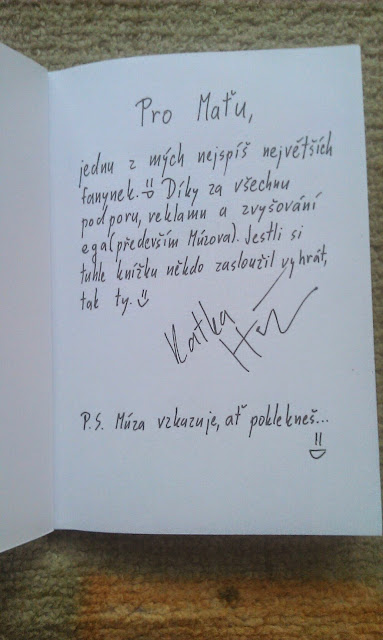 Pro Maťu,
jednu z mých nejspíš největších
fanynek. Díky za všechnu
podporu, reklamu a zvyšování
ega (především Múzova). Jestli si
tuhle knížku někdo zasloužil vyhrát,
tak ty.
Katka
P.S. Múza vzkazuje, ať poklekneš...